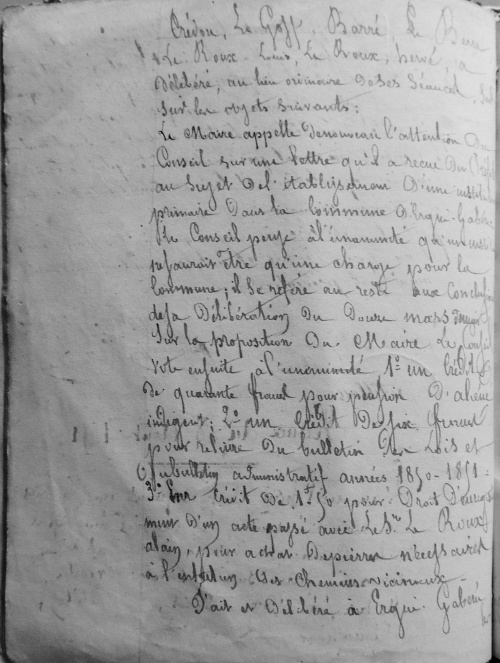 Crédou, Le Goff, Barré, Le Berre
Le Roux Louis, Le Roux, hervé, a
Délibéré, au lieu ordinaire de ses Séances,
sur les objets suivants:
Le Maire appelle denouveau l'attention du
Conseil sur une lettre qu'il a reçue du Préfet
au sujet de l'établissement d'une
primaire dans la Commune d'Ergué-Gabéric
Le Conseil pense à l'unanimité qu'un
ne saurait être qu'une charge pour la
Commune; il se réfère au reste aux
de sa Délibération du Douze mars
Sur la proposition du Maire Le Conseil
vote ensuite à l'unanimité 1º un Crédit
De quarante francs pour pension d'aliéné
indigent; 2º un Crédit de six francs
pour reliure du bulletin des lois et
Du bulletin administratif années 1850-1851
3º Un Crédit de 1f50 pour Droit d'enregis
d'un acte passé avec le Sr Le Roux
alain, pour achat de pierres nécessaires
à l'entretien des Chemins vicinaux.
Fait et Délibéré à Ergué Gabéric